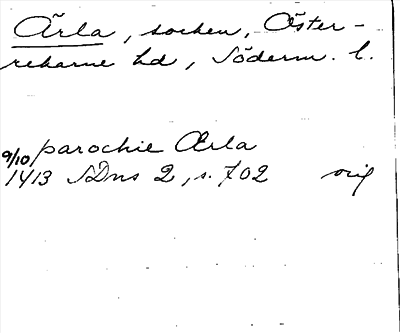 Ärla, socken, Öster-
rekarne hd, Söderm. l.
parochie Ærla
9/10
1413 SDns 2, s. 702 orig